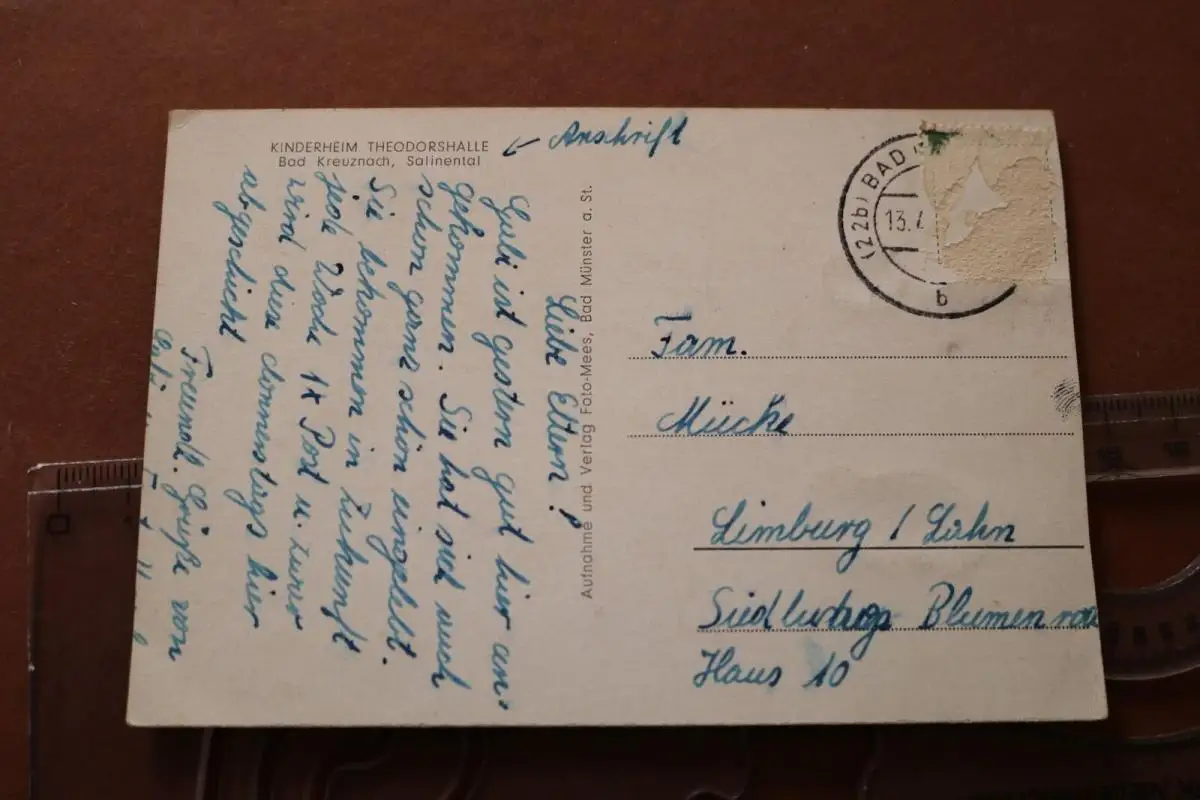 KINDERHEIM THEODORSHALLE
Bad Kreuznach, Salinental
← Anschrift
Liebe Eltern!
ist gestern gut hier an-
gekommen. Sie hat sich auch
schon ganz schön eingelebt.
Sie bekommen in Zukunft
jede Woche 1x Post u. zwar
wird diese donnerstags hier
abgeschickt
Freundl. Grüße von
Aufnahme und Verlag Foto-Mees, Bad Münster a. St.
(22b) BAD
13.
b
Fam.
Mücke
Limburg / Lahn
Siedlung Blumenrod
Haus 10